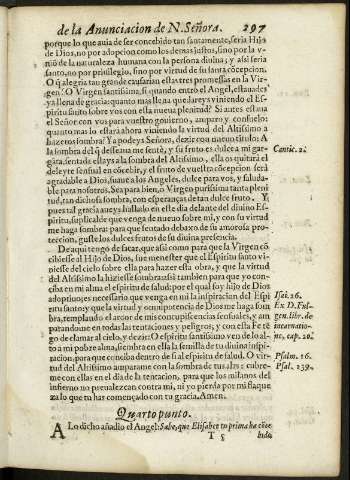 de la Anunciacion de N. Señora. 297
porque lo que auia de ser concebido tan santamente, seria Hijo
de Dios, no por adopcion como los demas justos, sino por la v-
niõ de la naturaleza humana con la persona diuina; y assi seria
santo, no por priuilegio, sino por virtud de su santa cõcepcion.
O q̃ alegria tan grande causarian estas tres promessas en la Vir-
gen! O Virgen santissima, si quando entrò el Angel, estauades
ya llena de gracia: quanto mas llena quedareys viniendo el Es-
piritu santo sobre vos con esta nueua plenitud? Si antes estaua
el Señor con vos para vuestro gouierno, amparo y consuelo:
quanto mas lo estarà ahora viniendo la virtud del Altissimo a
hazeros sombra? Ya podeys Señora, dezir con nueuo titulo: A
la sombra del q̃ desseaua me sentè, y su fruto es dulce a mi gar-
gãta, sentada estays a la sombra del Altissimo, ella os quitarà el
deleyte sensual en cõcebir, y el fruto de vuestra cõcepcion serà
agradable a Dios, suaue a los Angeles, dulce para vos, y saluda-
ble para nosotros. Sea para bien, o Virgen purissima tanta pleni
tud, tan dichosa sombra, con esperanças de tan dulce fruto. Y
pues tal gracia aueys hallado en este dia delante del diuino Es-
piritu, suplicalde que venga de nueuo sobre mi, y con su virtud
me haga sombra: para que sentado debaxo de su amorosa pro-
teccion, guste los dulces frutos de su diuina presencia.
De aqui tengo de sacar, que assi como para que la Virgen cõ
cibiesse al Hijo de Dios, fue menester que el Espiritu santo vi-
niesse del cielo sobre ella para hazer esta obra, y que la virtud
del Altissimo la hiziesse sombra: assi tambien para que yo con-
ciba en mi alma el espiritu de salud: por el qual soy hijo de Dios
adoptiuo, es necessario que venga en mi la inspiracion del Espi
ritu santo, y que la virtud y omnipotencia de Dios me haga som
bra, templando el ardor de mis concupiscencias sensuales, y am
parandome en todas las tentaciones y peligros, y con esta Fe tẽ
go de clamar al cielo, y dezir: O espiritu santissimo ven de lo al-
to a mi pobre alma, siembra en ella la semilla de tu diuina inspi-
racion, para que conciba dentro de si al espiritu de salud. O vir-
tud del Altissimo amparame con la sombra de tus alas: cubre
me con ellas en el dia de la tentacion, para que los milanos del
infierno no preualezcan contra mi, ni yo pierda por mi flaque
za lo que tu has començado con tu gracia. Amen.
Quarto punto.
A Lo dicho añadio el Angel: Sabe, que Elisabet tu prima ha cõce
T 5 bido
Cantic. 2.
Isai. 26.
Ex D. Ful-
gen. lib. de
incarnatio-
ne, cap. 20.
Psalm. 16.
Psal. 139.